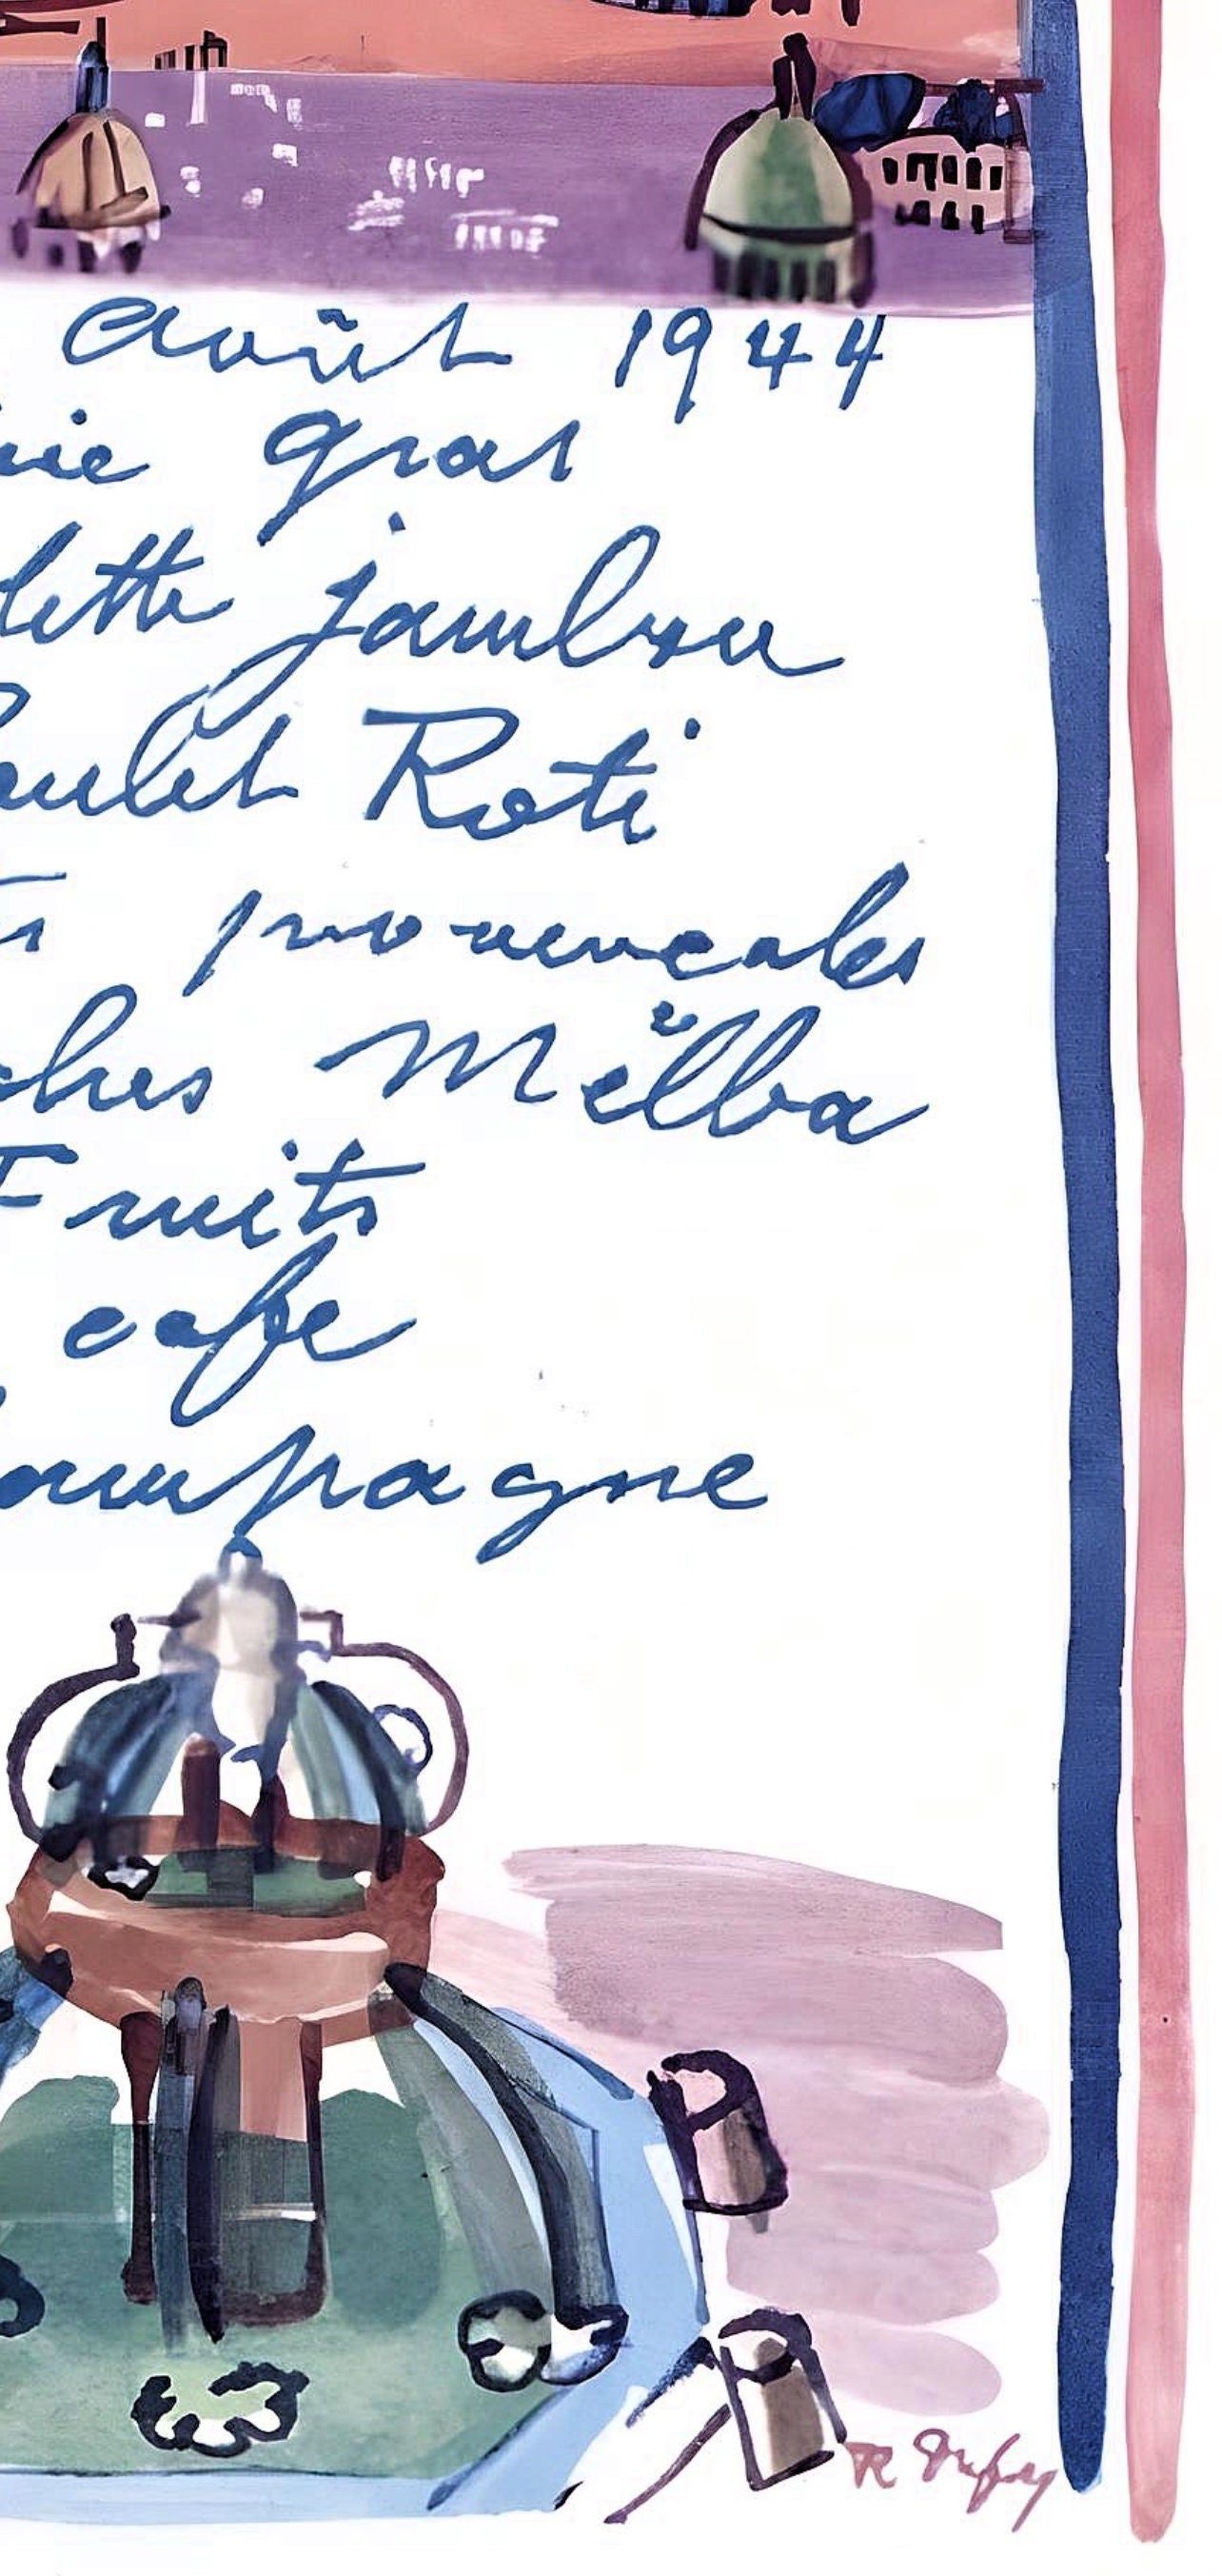 Août 1944
uie gras
lette jambon
oulet Roti
ts provencales
ches Mèlba
Fruits
cafe
hampagne
R Dufy